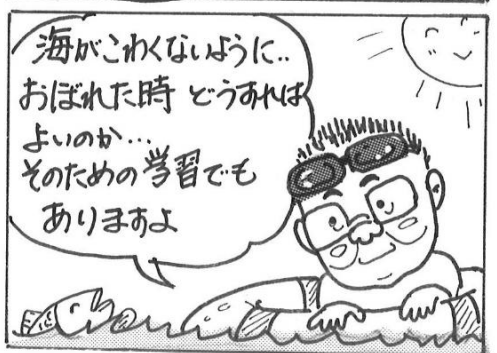 海がこわくないように..
おぼれた時 どうすれば
よいのか…
そのための学習でも
ありますよ